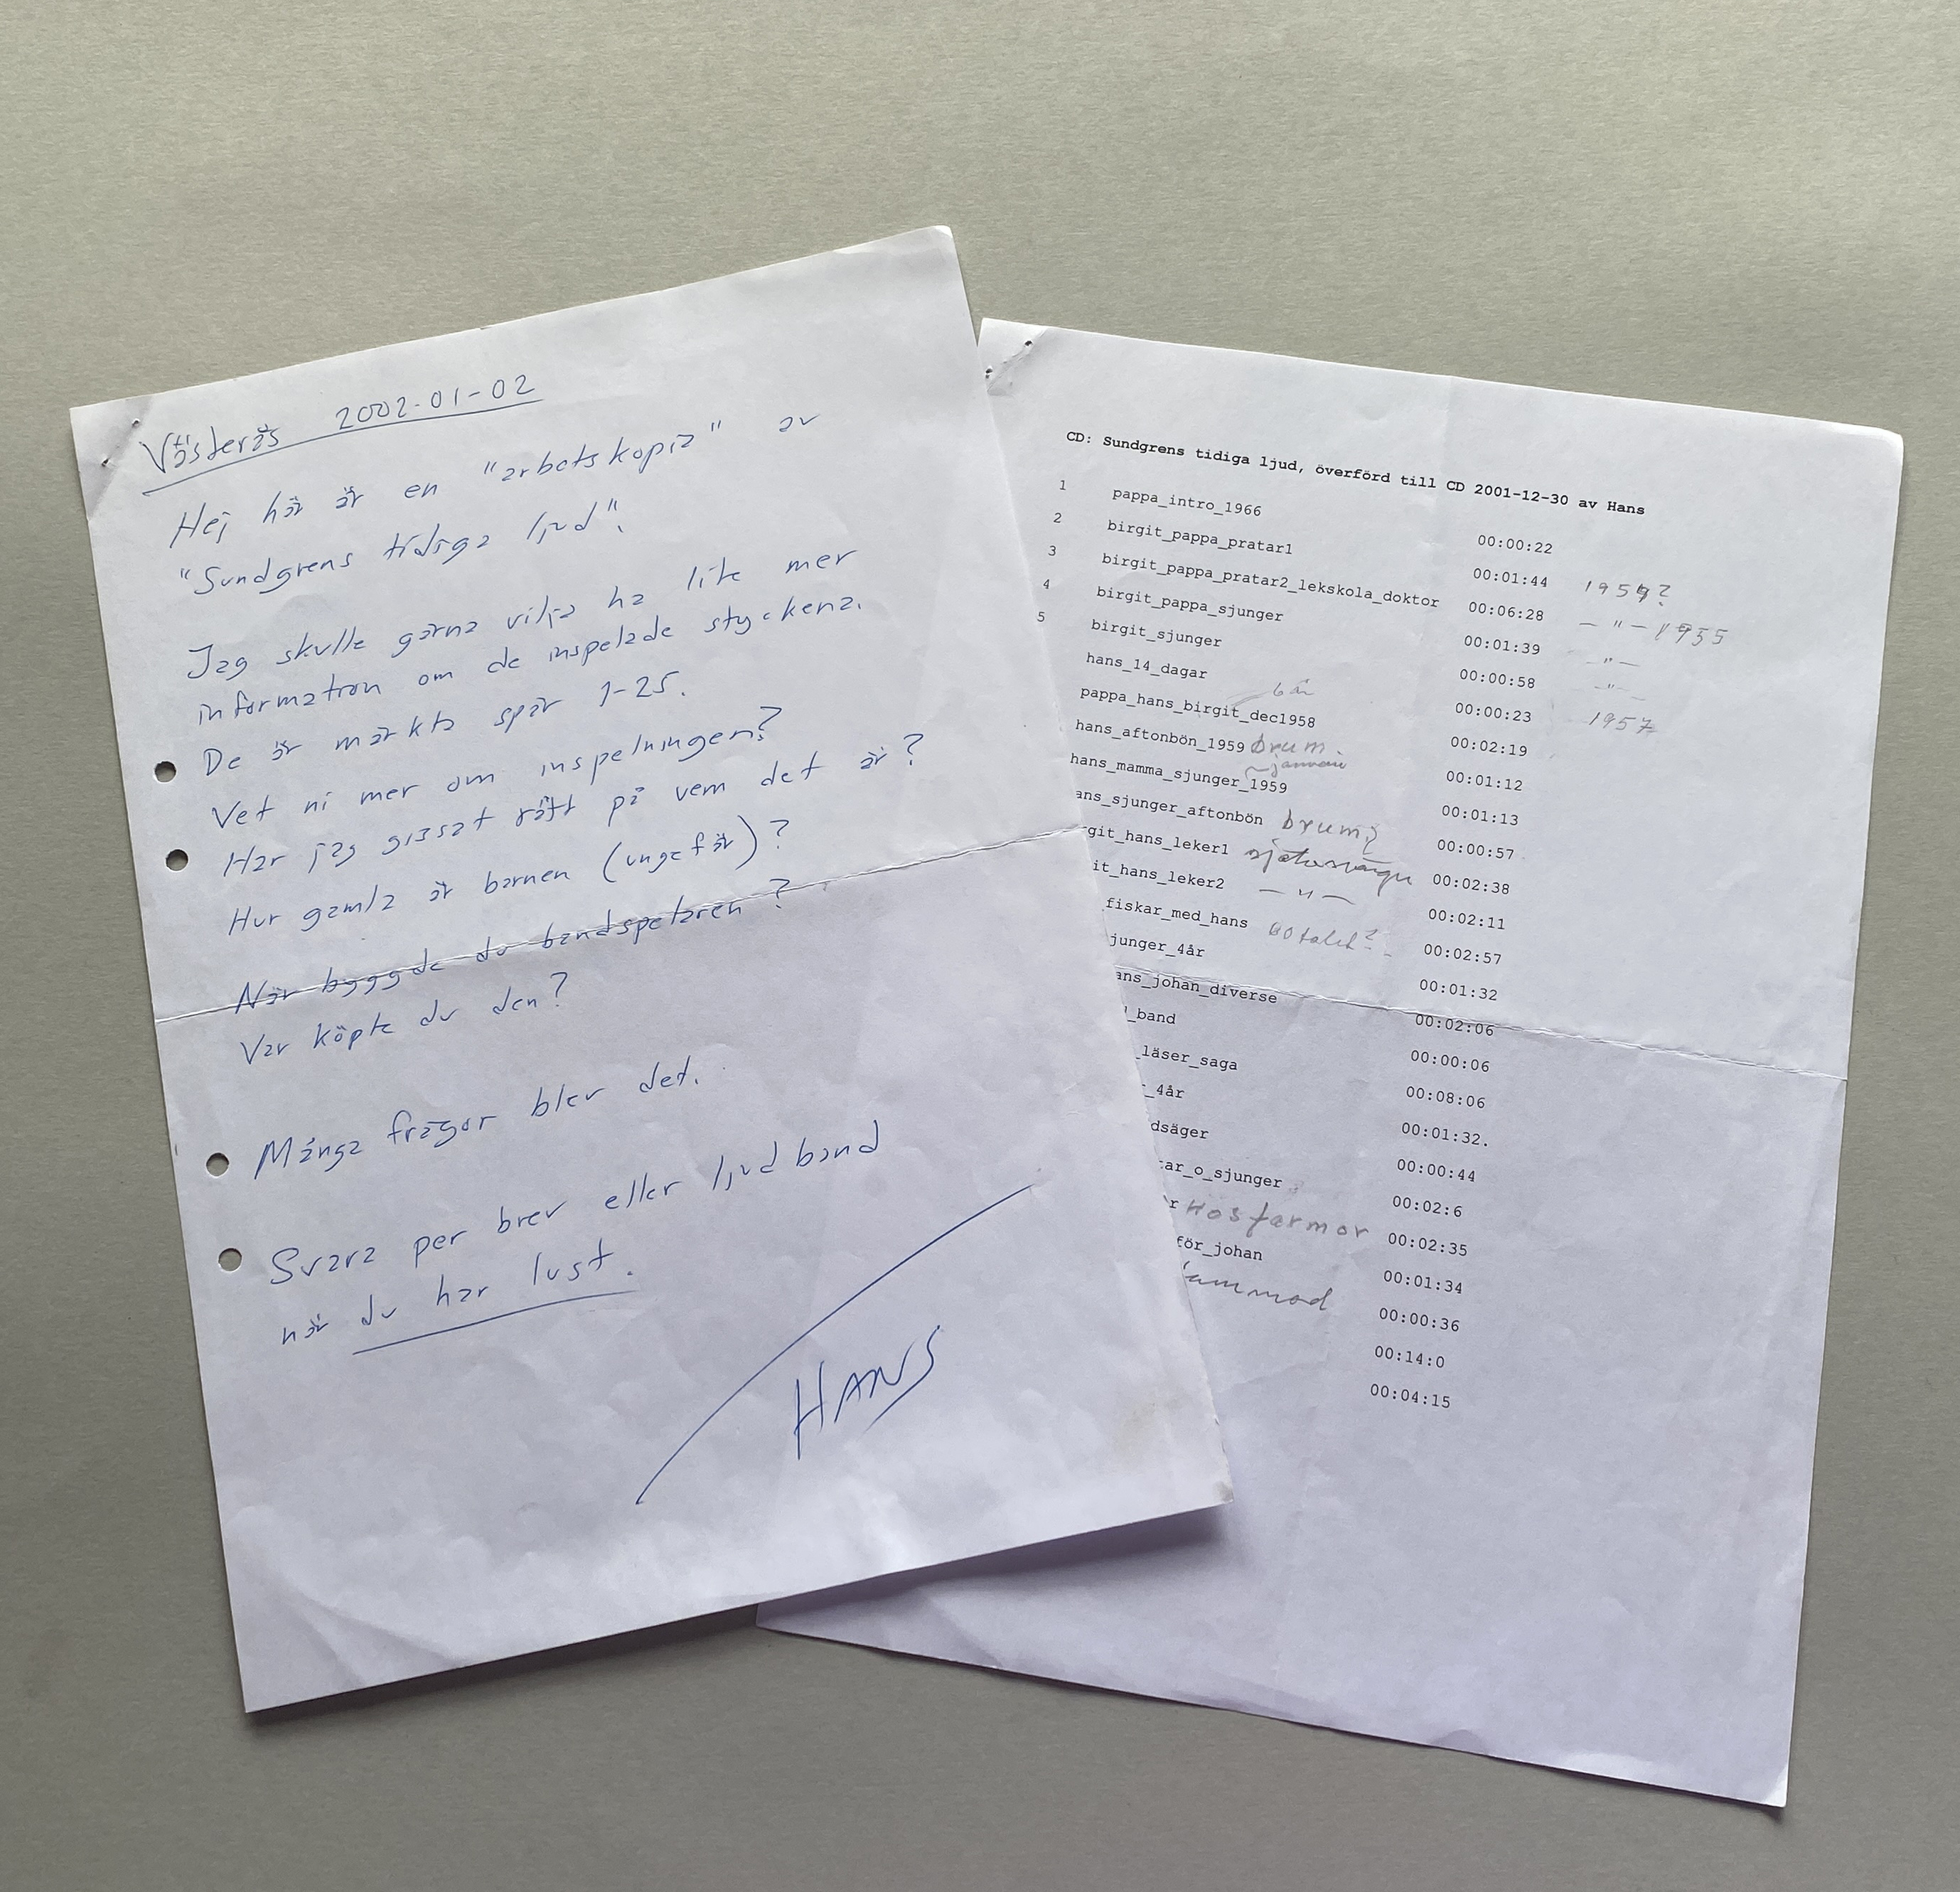 Västerås 2002-01-02
Hej här är en "arbetskopia" av
"Sundgrens tidiga ljud".
Jag skulle gärna vilja ha lite mer
information om de inspelade styckena.
De är märkta spår 1-25.
Vet ni mer om inspelningen?
Har jag gissat rätt på vem det är?
Hur gamla är barnen (ungefär)?
När byggde du bandspelaren?
Var köpte du den?
Många frågor blev det.
Svara per brev eller ljudband
när du har lust.
HANS
CD: Sundgrens tidiga ljud, överförd till CD 2001-12-30 av Hans
1 pappa_intro_1966 00:00:22
2 birgit_pappa_pratar1 00:01:44
3 birgit_pappa_pratar2_lekskola_doktor 00:06:28 – " – 1955
4 birgit_pappa_sjunger 00:01:39 – " –
5 birgit_sjunger 00:00:58 – " –
hans_14_dagar 00:00:23 1957
6 år
pappa_hans_birgit_dec1958 00:02:19
hans_aftonbön_1959 brum. 00:01:12
januari
hans_mamma_sjunger_1959 00:01:13
ans_sjunger_aftonbön brum? 00:00:57
git_hans_leker1 00:02:38
it_hans_leker2 – " – 00:02:11
fiskar_med_hans 60 talet? 00:02:57
junger_4år 00:01:32
ans_johan_diverse 00:02:06
_band 00:00:06
_läser_saga 00:08:06
_4år 00:01:32.
dsäger 00:00:44
tar_o_sjunger 00:02:6
r Hos farmor 00:02:35
för_johan 00:01:34
00:00:36
00:14:0
00:04:15